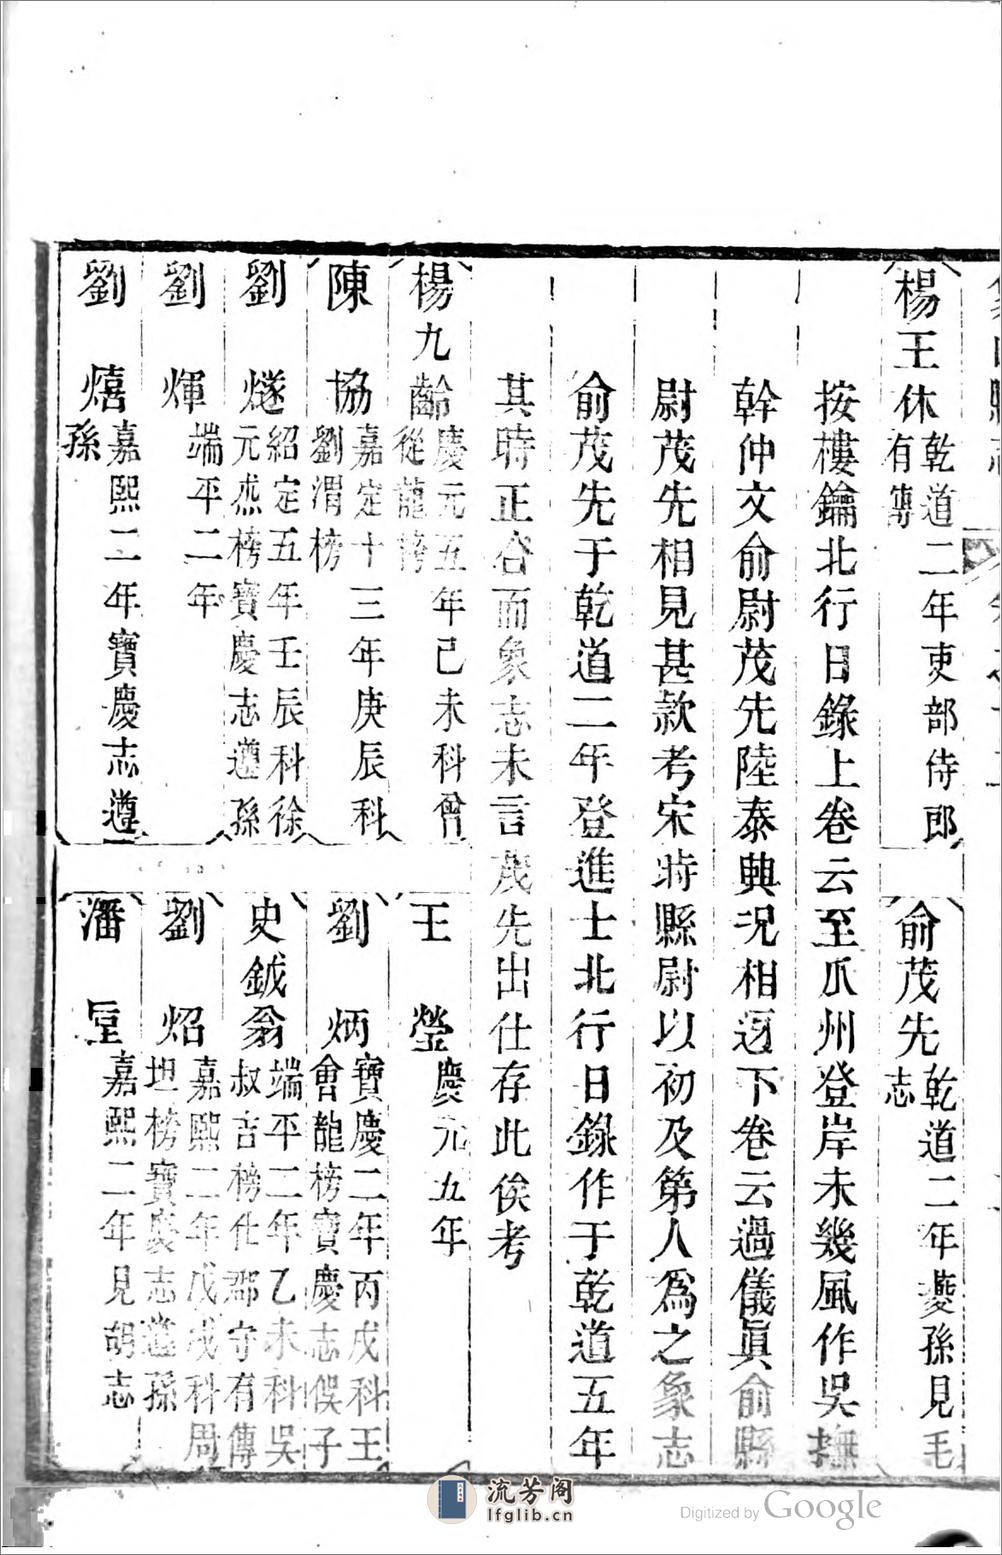 楊王休 乾道二年吏部侍郎
有傳
俞茂先 乾道二年夔孫見毛
志
按樓鑰北行日錄上卷云至瓜州登岸未幾風作吳撫
幹仲文俞尉茂先陸泰興況相迓下卷云過儀眞俞縣
尉茂先相見甚款考宋時縣尉以初及第人爲之象志
俞茂先于乾道二年登進士北行日錄作于乾道五年
其時正合而象志未言茂先出仕存此俟考
楊九齡 慶元五年己未科曾
從龍榜
王 瑩 慶元五年
陳 協 嘉定十三年庚辰科
劉渭榜
劉 炳 寶慶二年丙戌科王
會龍榜寶慶志俁子
劉 燧 紹定五年壬辰科徐
元杰榜寶慶志遵孫
史鉞翁 端平二年乙未科吳
叔吉榜仕郡守有傳
劉 煇 端平二年
劉 炤 嘉熙二年戊戌科周
坦榜寶慶志遵孫
劉 熺 嘉熙二年寶慶志遵
孫
潘 垕 嘉熙二年見胡志
流芳阁
lfglib.cn
Digitized by Google